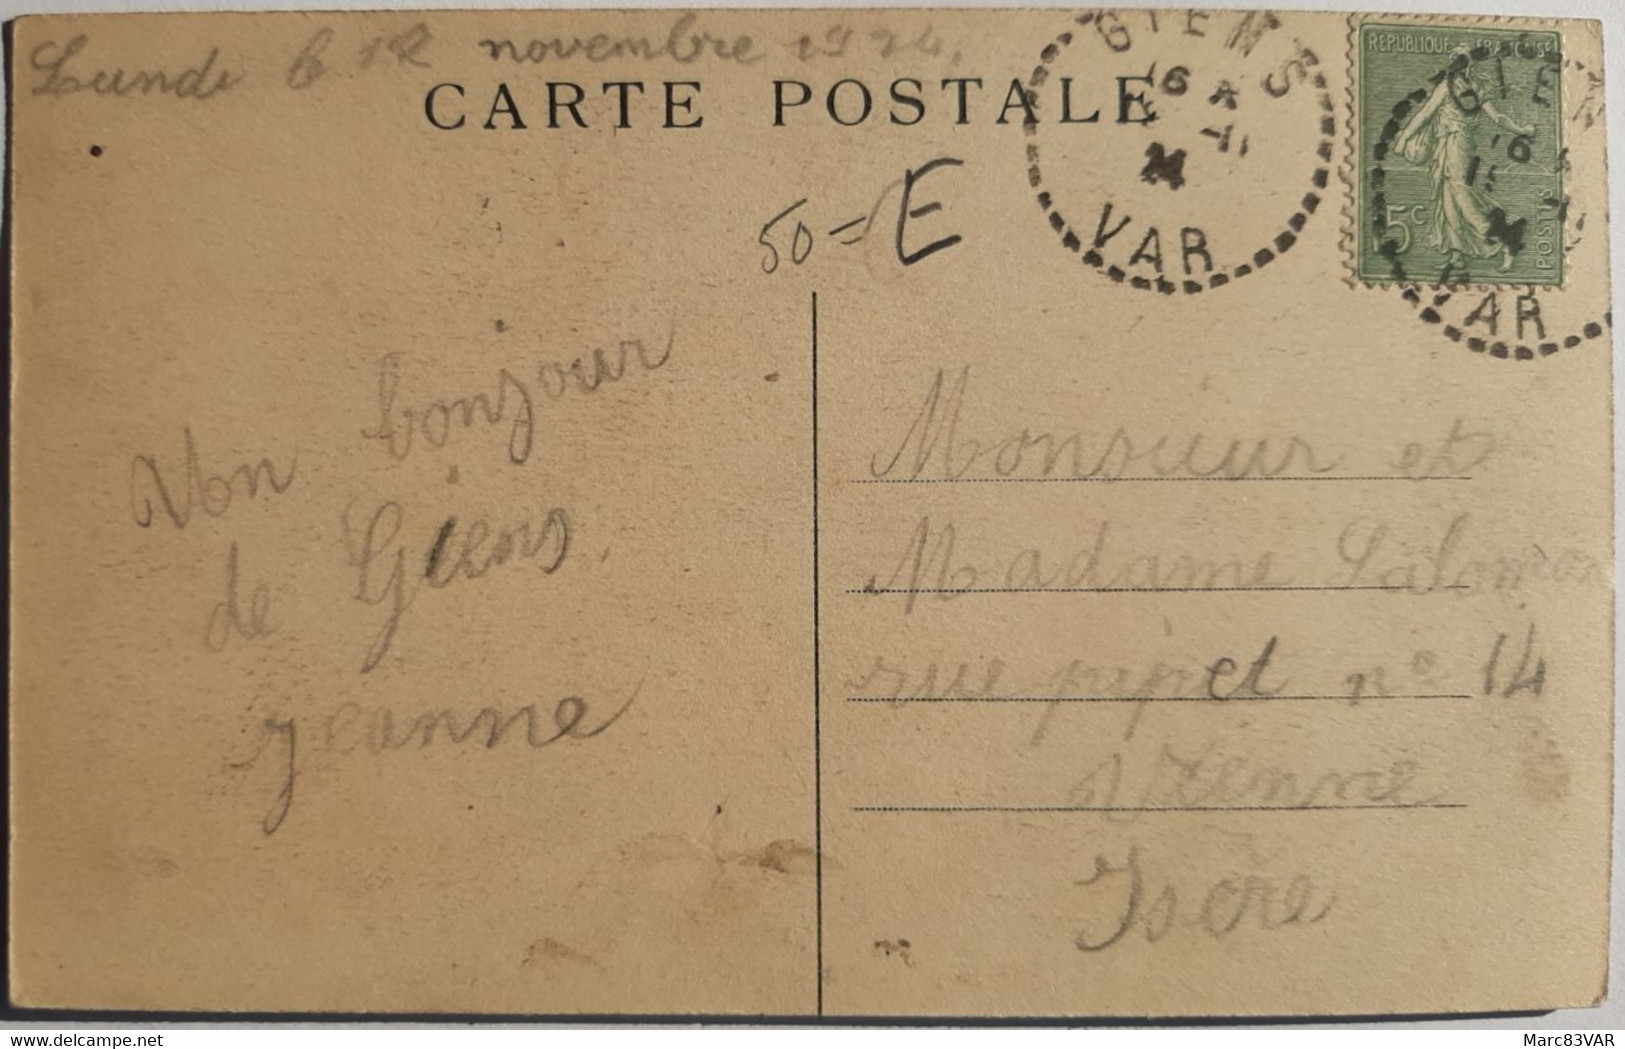 Lundi le 12 novembre 1924.
CARTE POSTALE
50 = E
GIENS
16
24
VAR
REPUBLIQUE FRANÇAISE
15c
POSTES
GIENS
16
24
VAR
Mon bonjour
de Giens.
Jeanne
Monsieur et
Madame Salomon
rue pipet n° 14
Vienne
Isère
Marc83VAR